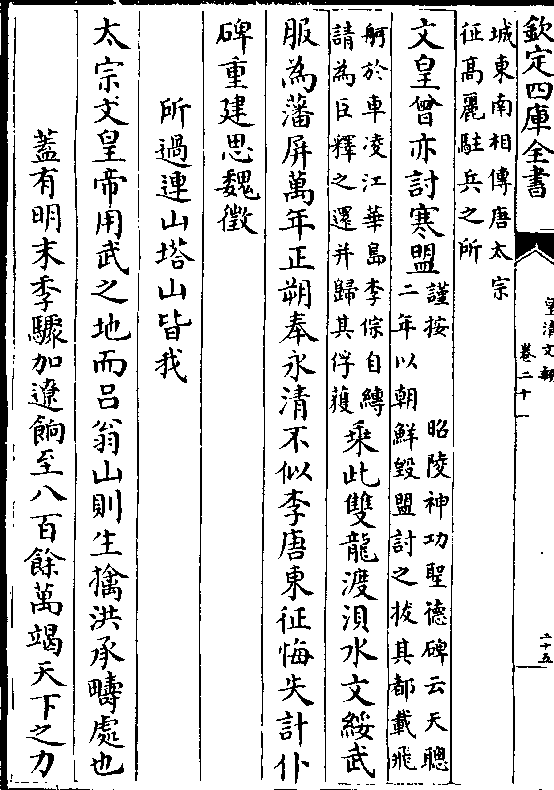 欽定四庫全書
皇清文穎
卷二十一
二十五
城東南相傳唐太宗
征髙麗駐兵之所
文皇曾亦討寒盟
謹按 昭陵神功聖德碑云天聰
二年以朝鮮毀盟討之拔其都載飛
舸於車凌江華島李倧自縛
請為臣釋之還并歸其俘獲
乘此雙龍渡浿水文綏武
服為藩屏萬年正朔奉永清不似李唐東征悔失計仆
碑重建思魏徵
所過連山塔山皆我
太宗文皇帝用武之地而呂翁山則生擒洪承疇處也
蓋有明末季驟加遼餉至八百餘萬竭天下之力